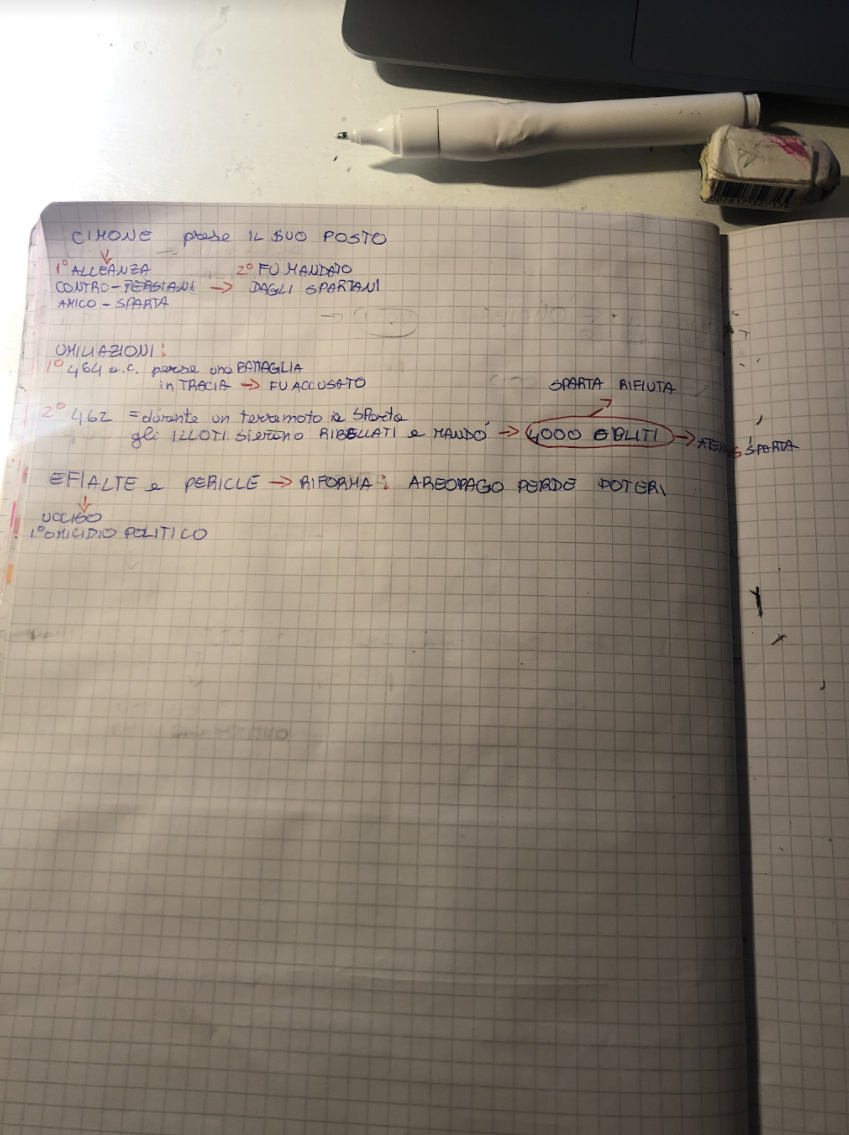 CIMONE prese IL SUO POSTO
1° ALLEANZA 2° FU MANDATO
CONTRO-PERSIANI → DAGLI SPARTANI
AMICO-SPARTA
UMILIAZIONI:
1° 464 a.c. perse una BATTAGLIA
in TRACIA → FU ACCUSATO
SPARTA RIFIUTA
2° 462 = durante un terremoto a SParta
gli ILLOTI si erano RIBELLATI e MANDÓ → 4000 OPLITI → SPARTA
EFIALTE e PERICLE → RIFORMA: AREOPAGO PERDE POTERI
UCCISO
1° OMICIDIO POLITICO